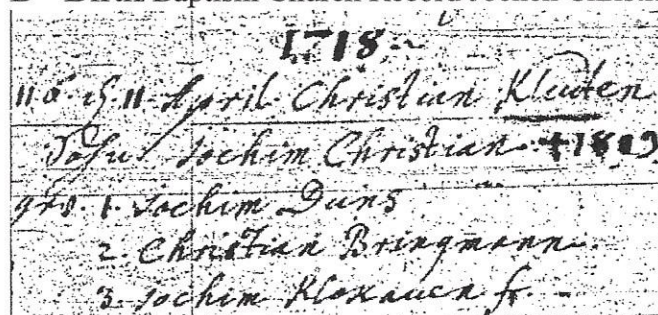 1718.
11. April. Christian Kluten
Sohn Jochim Christian. † 1809
1. Jochim Duns
2. Christian Bringmann.
3. Jochim